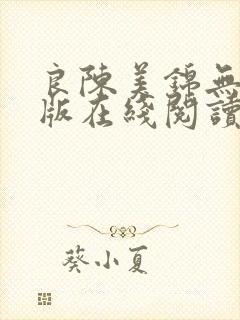 良陳美錦無
版在綫閱讀
葵小夏